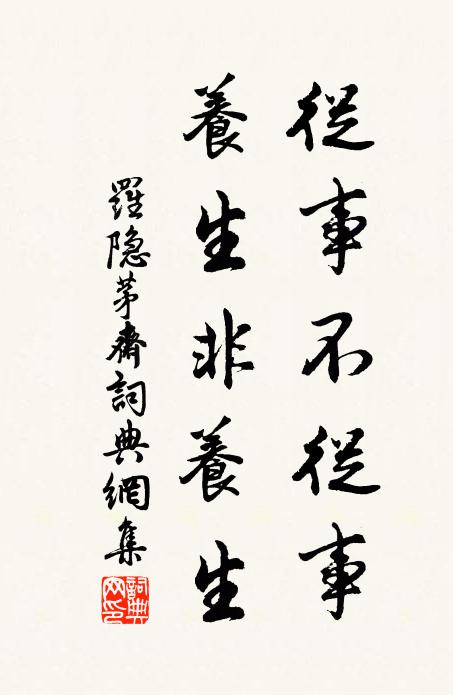 從事不從事
養生非養生
羅隐茅齋詞典網集
詞典网印